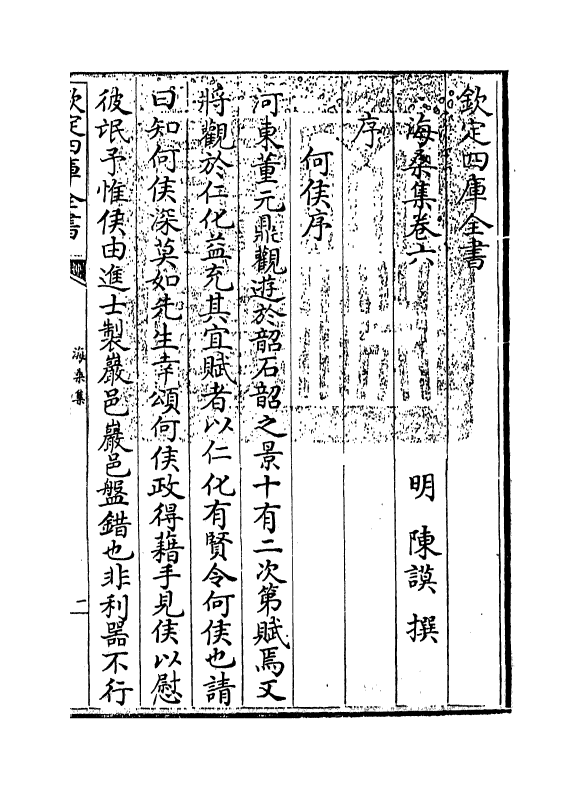 欽定四庫全書
海桑集卷六
明 陳謨 撰
序
何侯序
河東董元鼎觀遊於韶石韶之景十有二次第賦焉又
將觀於仁化益充其宜賦者以仁化有賢令何侯也請
曰知何侯深莫如先生幸頌何侯政得藉手見侯以慰
彼氓予惟侯由進士製巖邑巖邑盤錯也非利器不行
欽定四庫全書
海桑集